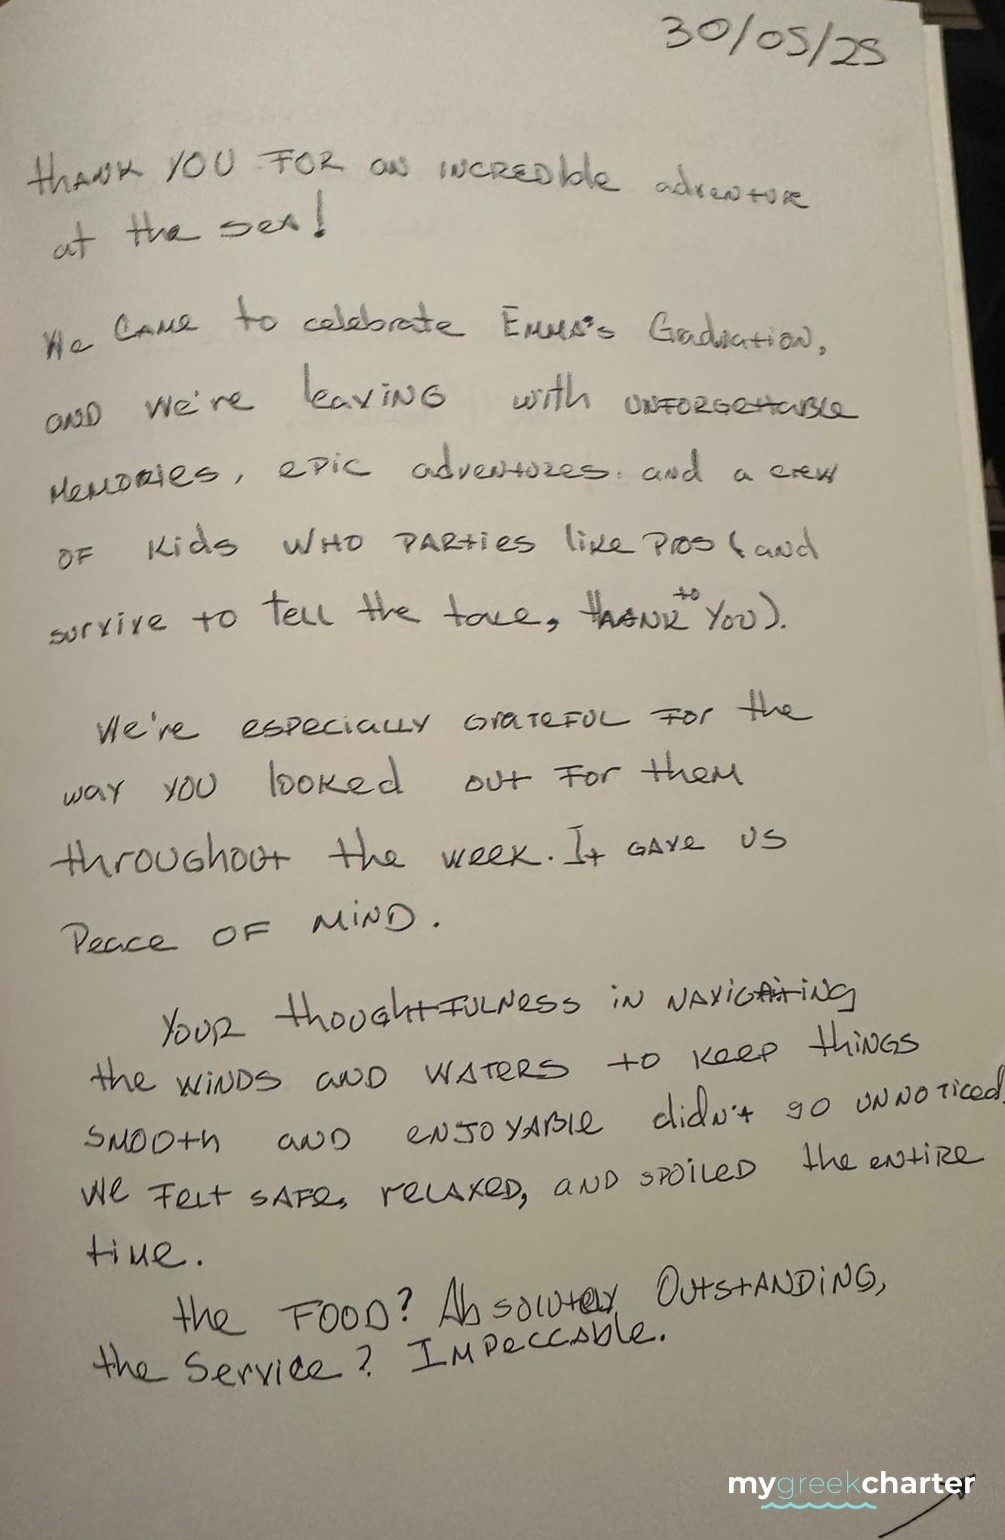 30/05/25
thank you for an incredible adventure
at the sea!
We came to celebrate Emma's Graduation,
and we're leaving with unforgettable
memories, epic adventures. and a crew
of kids who parties like pros (and
survive to tell the tale, thank to you).
We're especially grateful for the
way you looked out for them
throughout the week. It gave us
Peace of mind.
Your thoughtfulness in navigating
the winds and waters to keep things
smooth and enjoyable didn't go unnoticed.
We felt safe, relaxed, and spoiled the entire
time.
the FOOD? Absolutely Outstanding,
the Service? Impeccable.
mygreekcharter